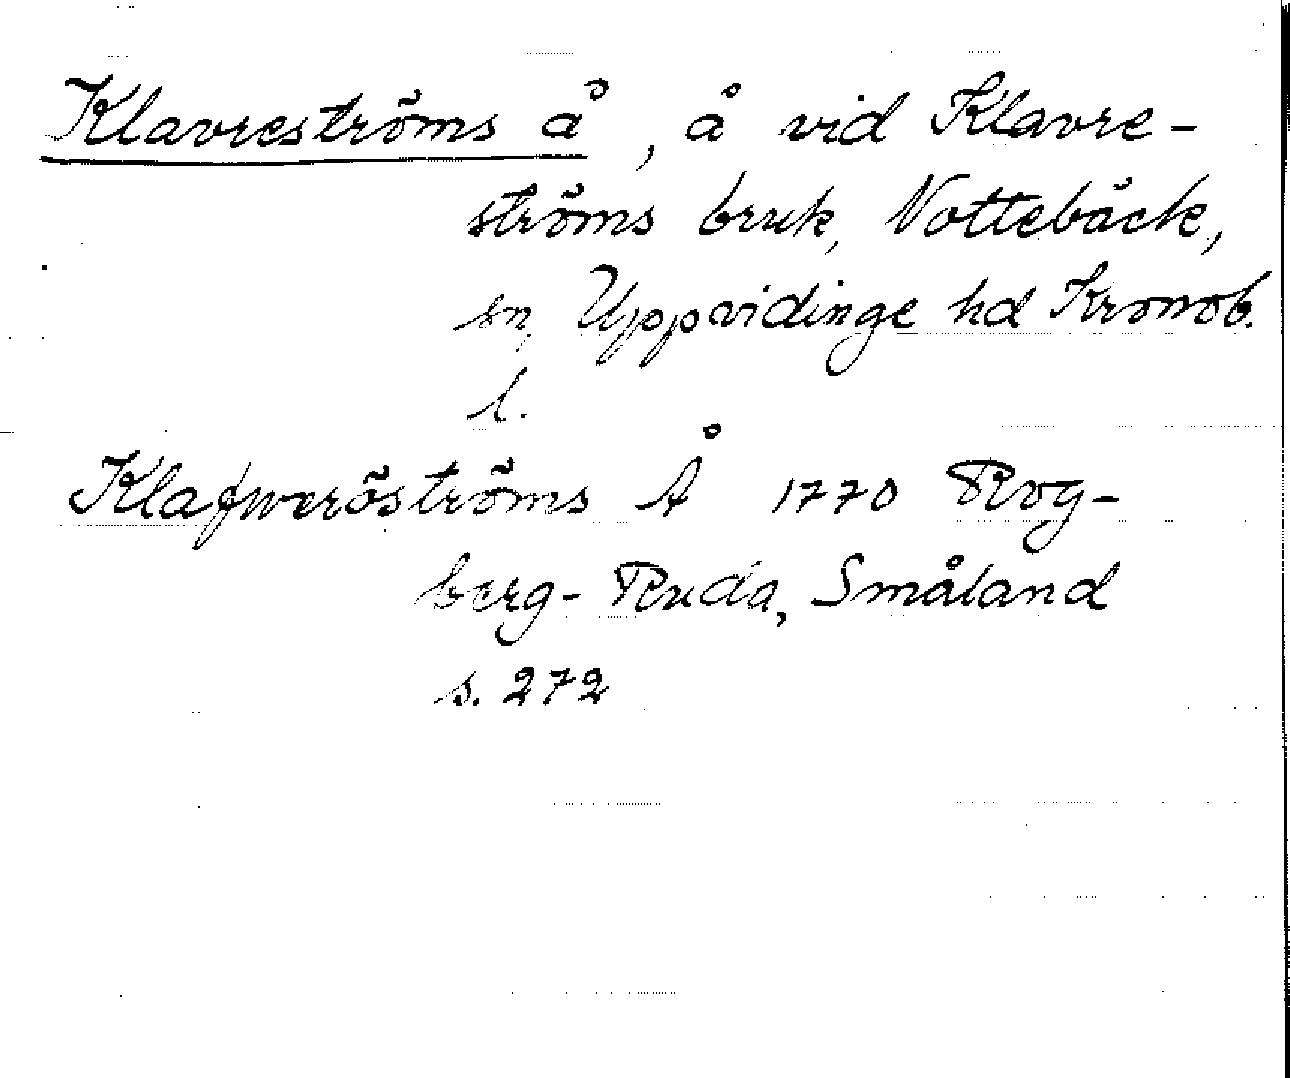 Klavreströms å, å vid Klavre-
ströms bruk, Nottebäck,
sn, Uppvidinge hd Kronob.
l.
Klafweröströms Å 1770 Rog-
berg-Ruda, Småland
s. 272